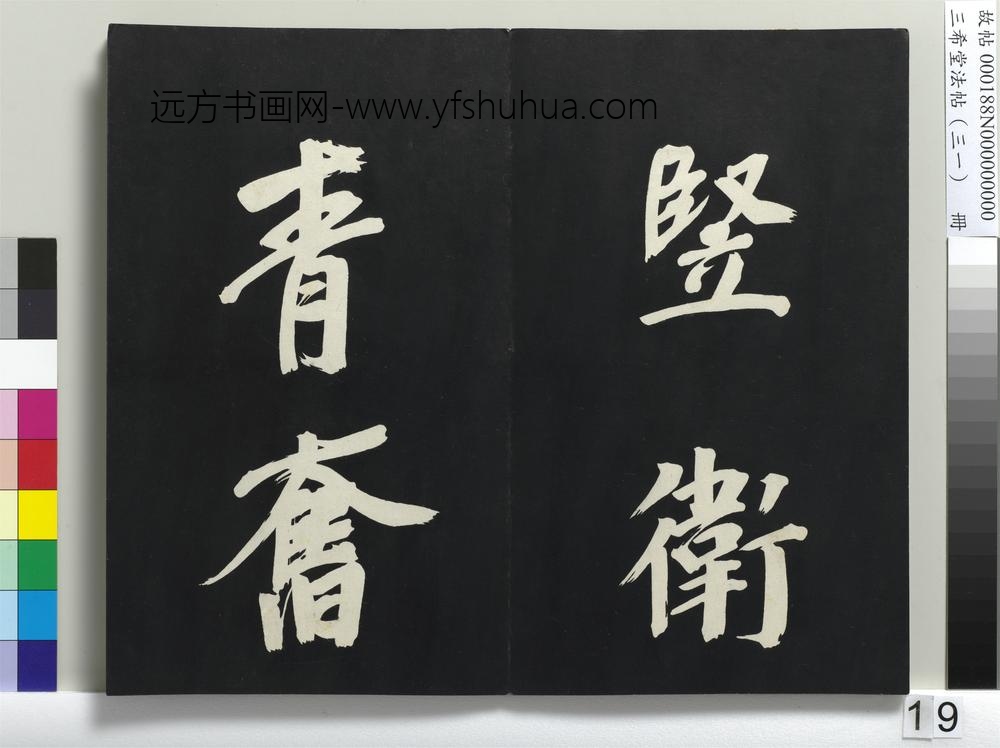 远方书画网-www.yfshuhua.com
竖衛
青奮
故帖 000188N000000000
三希堂法帖（三一） 冊
19